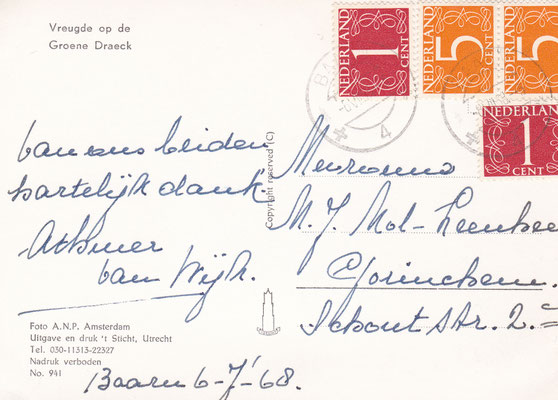 Vreugde op de
Groene Draeck
NEDERLAND
1
CENT
NEDERLAND
5
CENT
NEDERLAND
5
CENT
NEDERLAND
1
CENT
4
van ons beiden
hartelijk dank.
van Wijk.
Copyright reserved (C)
Mevrouw
M. J. Mol-
Gorinchem.
str. 2
Foto A.N.P. Amsterdam
Uitgave en druk 't Sticht, Utrecht
Tel. 030-11313-22327
Nadruk verboden
No. 941
Baarn 6-7-'68.